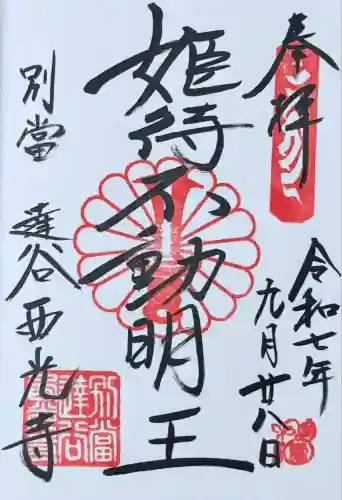 奉拝
令和七年
九月廿八日
姫待不動明王
別當
達谷西光寺